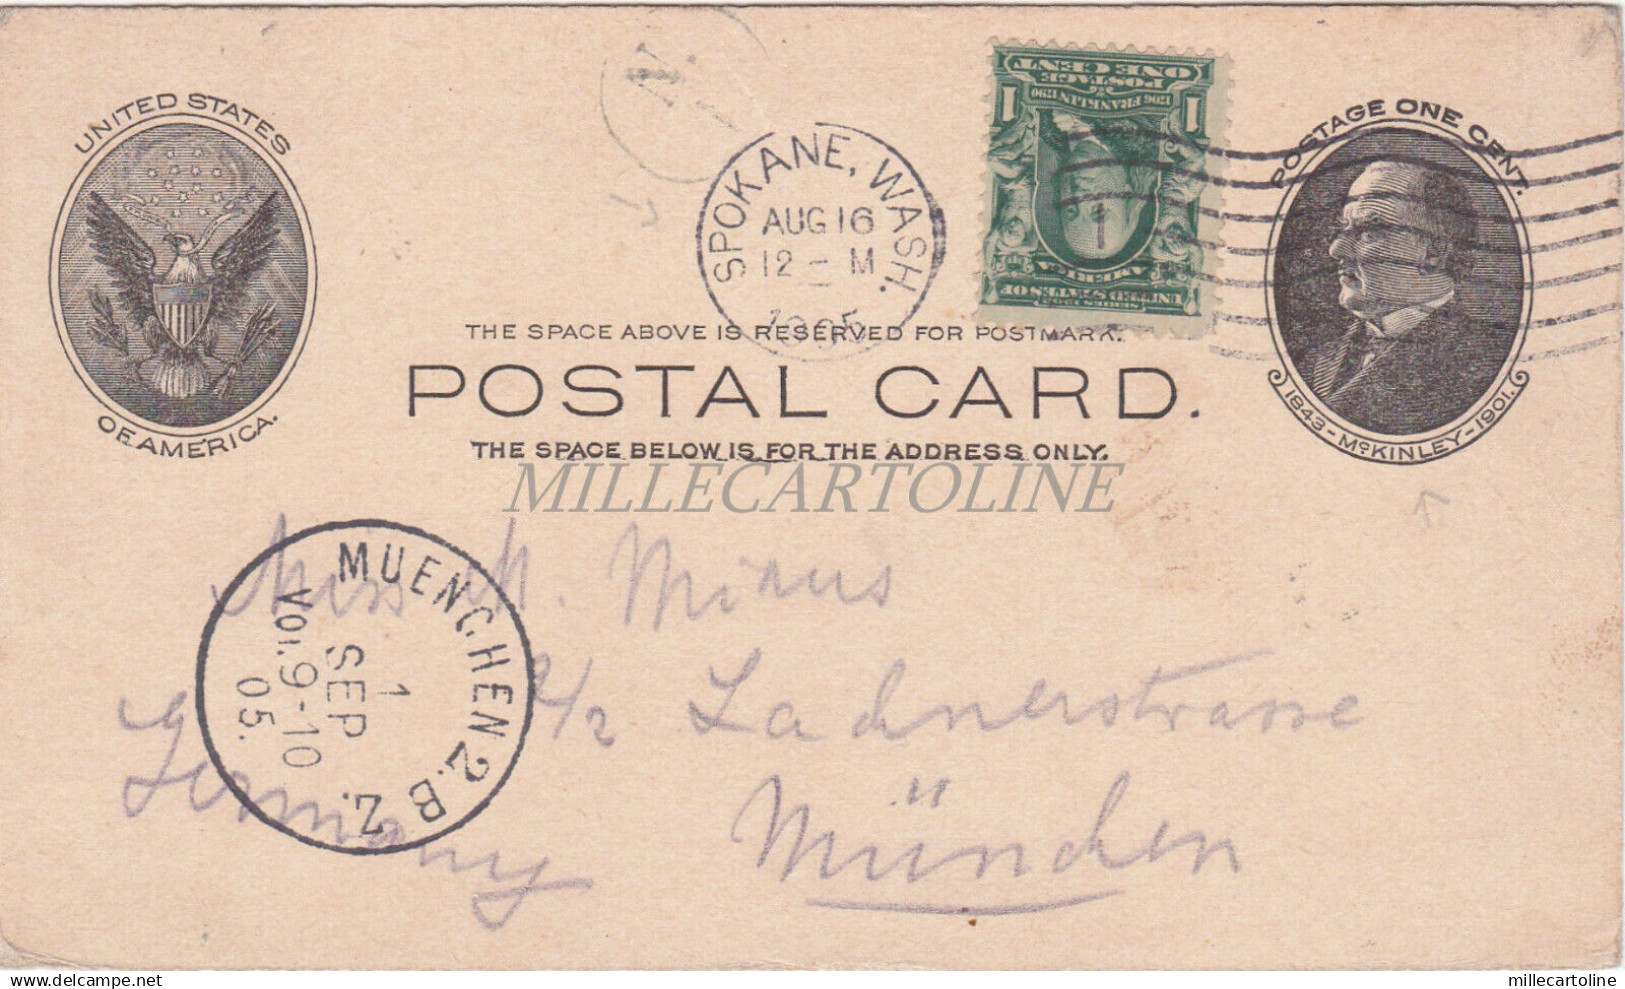 UNITED STATES
OF AMERICA.
N.
SPOKANE, WASH.
AUG 16
12 - M
1905
1 1
UNITED STATES OF
AMERICA
SERIES 1902
1706 FRANKLIN 1790
POSTAGE
ONE CENT
POSTAGE ONE CENT.
1843-McKINLEY-1901.
THE SPACE ABOVE IS RESERVED FOR POSTMARK.
POSTAL CARD.
THE SPACE BELOW IS FOR THE ADDRESS ONLY.
MILLECARTOLINE
MUENCHEN 2. B Z.
1
SEP
Vor. 9-10
05.
Miss M.
/2 Lachnerstrasse
München
Germany
millecartoline
delcampe.net